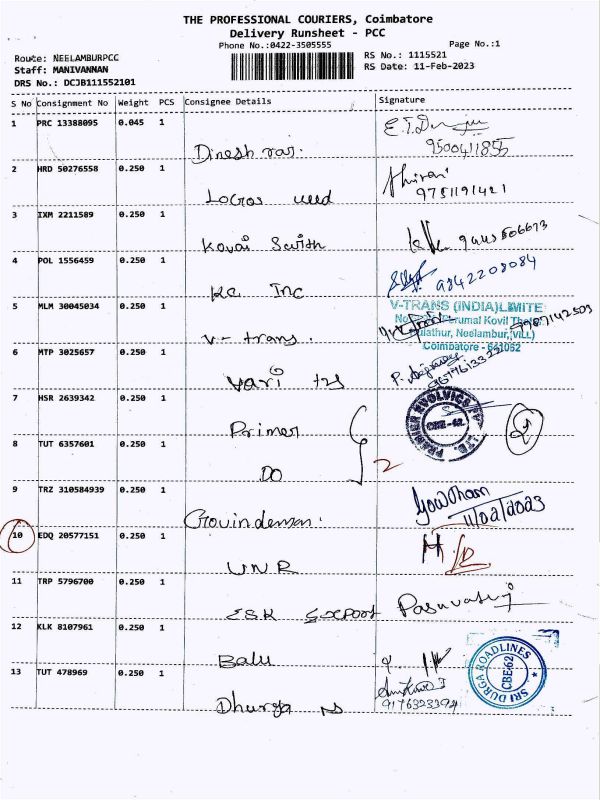 THE PROFESSIONAL COURIERS, Coimbatore
Delivery Runsheet - PCC
Phone No.:0422-3505555 Page No.:1
Route: NEELAMBURPCC RS No.: 1115521
Staff: MANIVANNAN RS Date: 11-Feb-2023
DRS No.: DCJB111552101
S No Consignment No Weight PCS Consignee Details Signature
1 PRC 13388095 0.045 1
Dinesh raj. 9500411855
2 HRD 50276558 0.250 1
Logos weed 9751191421
3 IXM 2211589 0.250 1
Kovai
4 POL 1556459 0.250 1 9842208084
KC Inc
5 MLM 30045034 0.250 1 V-TRANS (INDIA) LIMITE
Perumal Kovil
Neelambur,(VILL)
V-trans. Coimbatore - 641062
6 MTP 3025657 0.250 1
Vari
7 HSR 2639342 0.250 1
Primer CBE-62
8 TUT 6357601 0.250 1 2
DO
9 TRZ 310584939 0.250 1 Gowtham
Govindeman. 11/02/2023
10 EDQ 20577151 0.250 1
UNR
11 TRP 5796700 0.250 1
ESK Export
12 KLK 8107961 0.250 1
Balu SRI DURGA ROADLINES
CBE-62
13 TUT 478969 0.250 1
Dhurga 9176323394